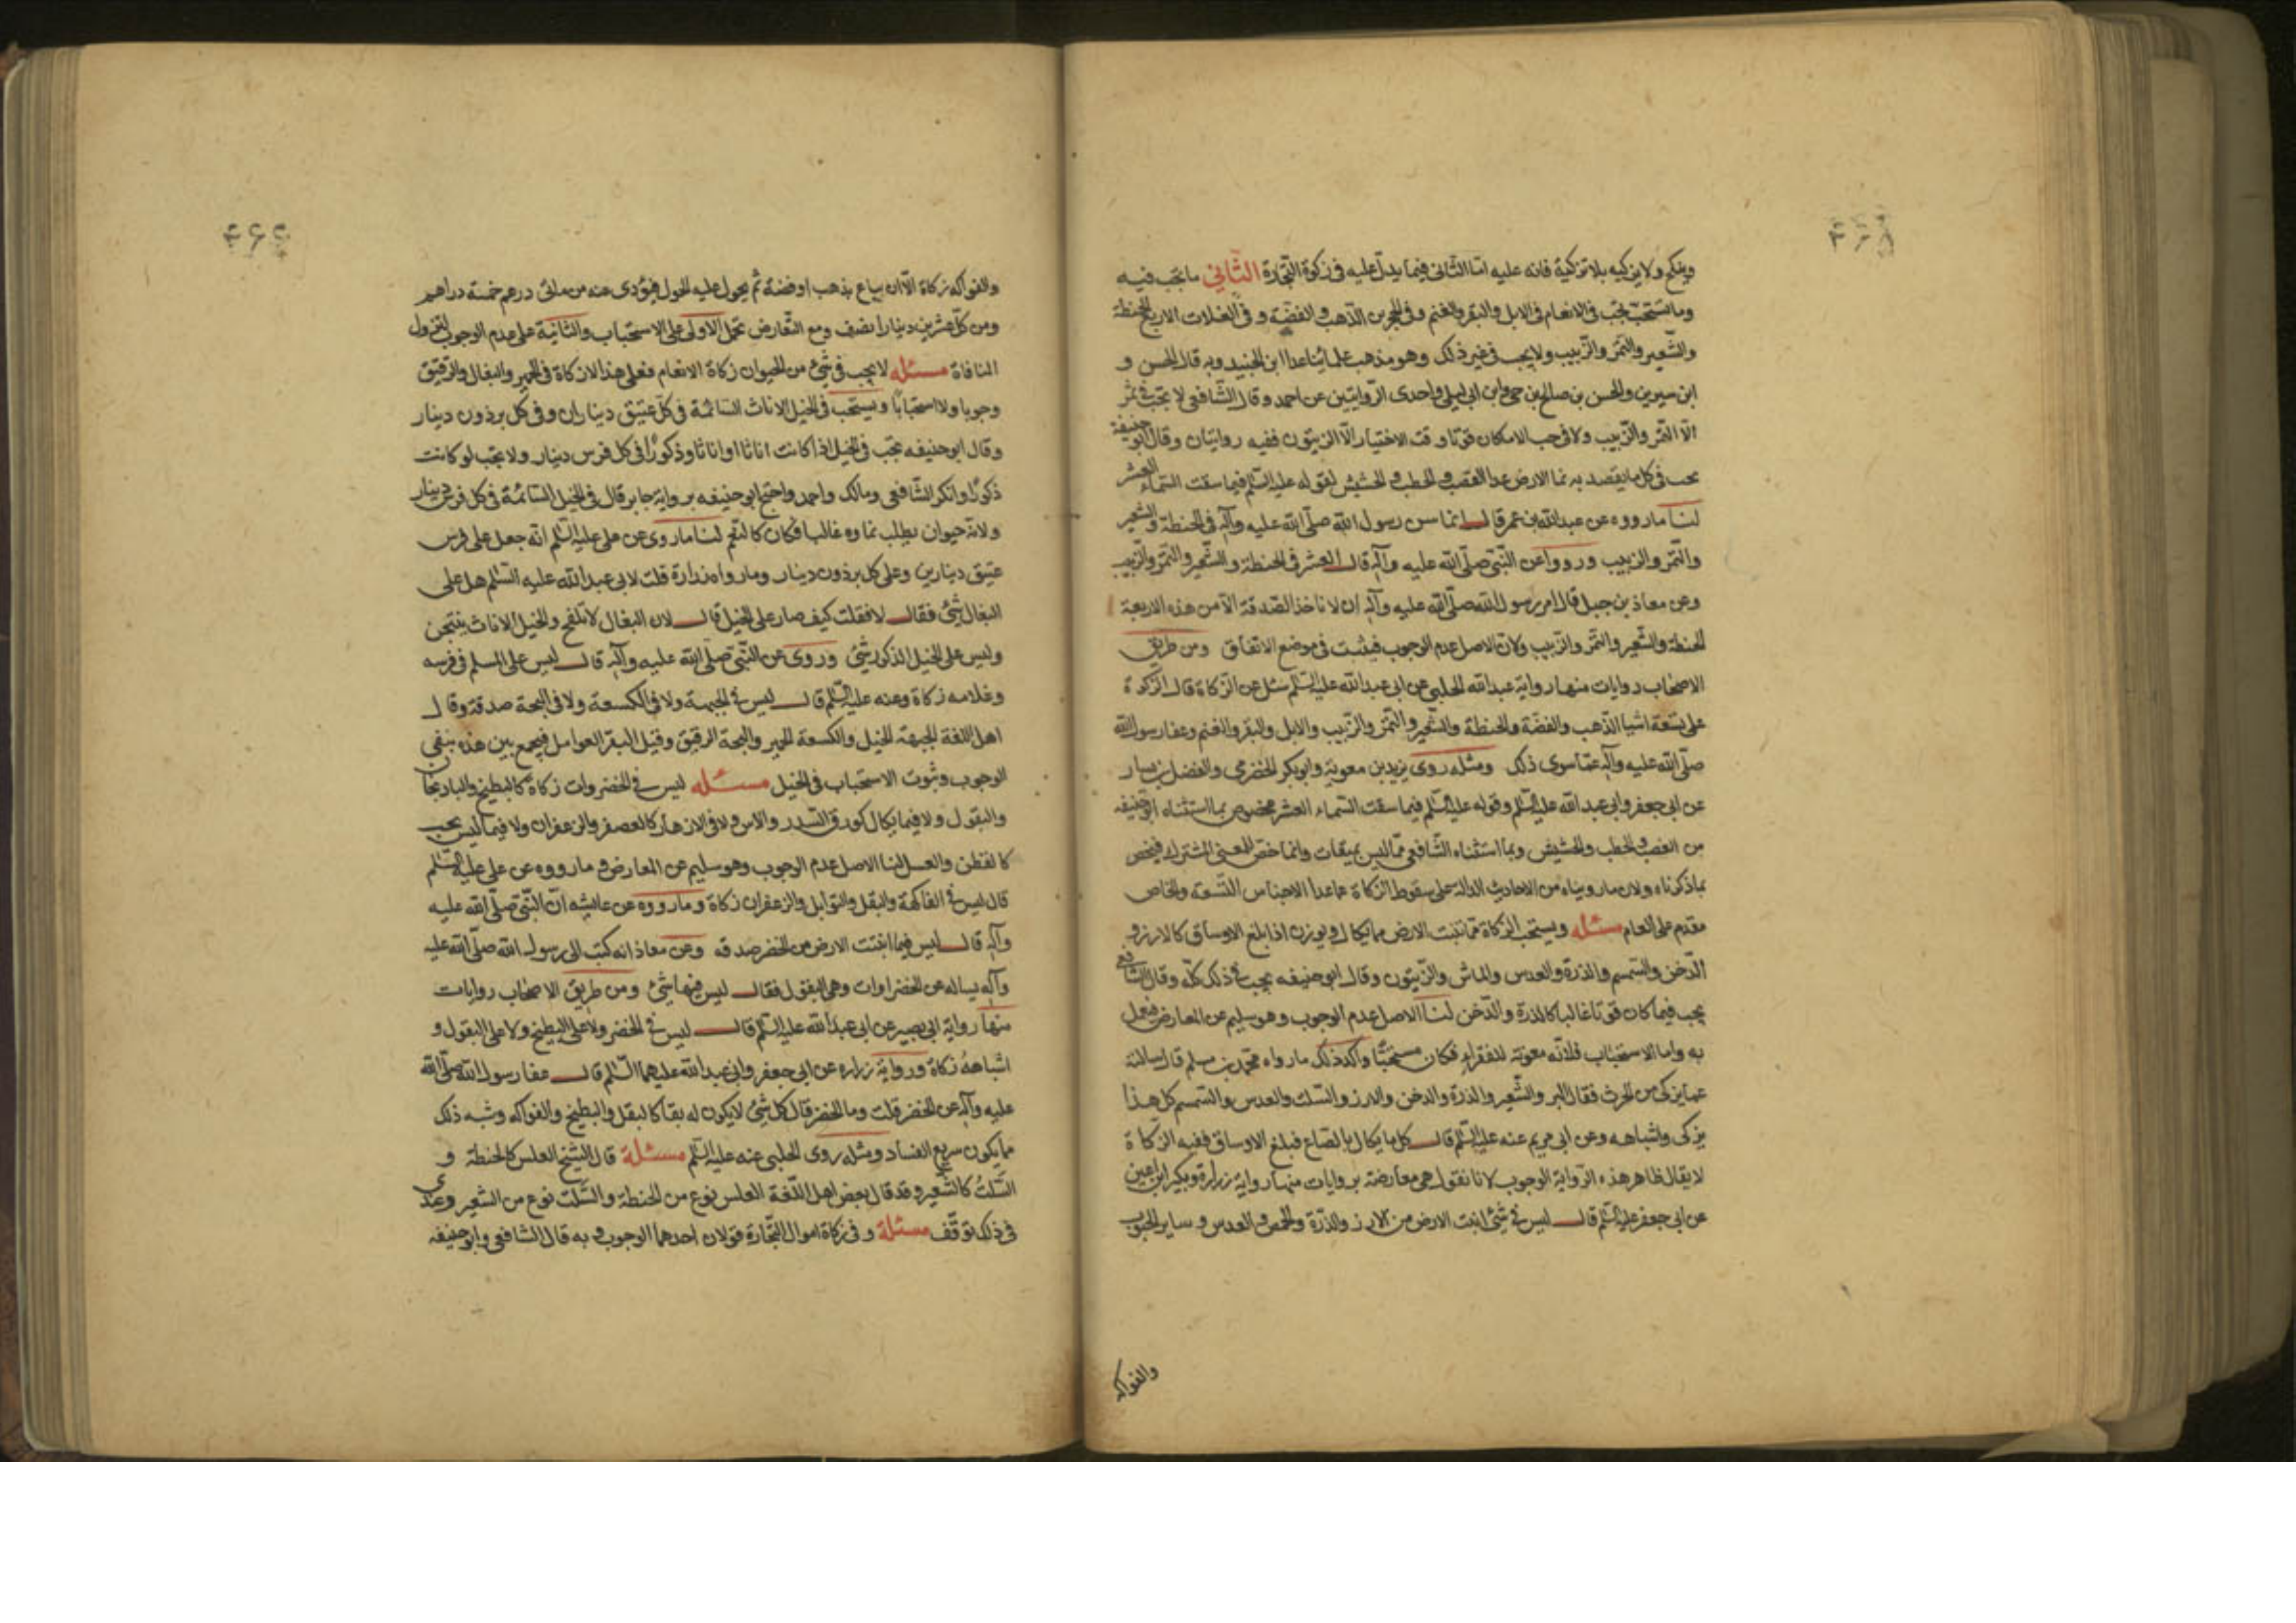 ويزكيهم ولا يزكيه بلا تزكية فانه عليه امّا الثانى فيما يدلّ عليه فى زكوة التجارة الثّاني ما تجب فيه
وما تستحبّ تجب فى الانعام فى الابل والبقر والغنم وفى الحجرين الذّهب والفضّة و فى الغلات الاربع الحنطة
والشّعير والتّمر والزّبيب ولا يجب فى غير ذلك وهو مذهب علمائنا عدا ابن الجنيد وبه قال الحسن و
ابن سيرين والحسن بن صالح بن حى وابن ابى ليلى واحدى الرّوايتين عن احمد وقال الشّافعى لا تجب فى ثمر
الّا التّمر والزّبيب ولا فى حب الا ما كان قوتا وقت الاختيار الّا الزيتون ففيه روايتان وقال ابو حنيفة
يجب فى كل ما يقصد به نما الارض عدا القصب والحطب والحشيش لقوله عليه السّلم فيما سقت السّماء العشر
لنا ما رووه عن عبدالله بن عمر قال انما سن رسول الله صلّى الله عليه وآله فى الحنطة والشعير
والتّمر والزبيب ورووا عن النّبى صلّى الله عليه وآله قال العشر فى الحنطة والشّعير والتّمر والزّبيب
وعن معاذ بن جبل قال امر رسول الله صلّى الله عليه وآله ان لا ناخذ الصّدقة الّا من هذه الاربعة
الحنطة والشّعير والتّمر والزّبيب ولانّ الاصل عدم الوجوب فيثبت فى موضع الاتفاق ومن طريق
الاصحاب روايات منها رواية عبدالله الحلبى عن ابى عبدالله عليه السّلم سئل عن الزّكاة قال الزّكوة
على تسعة اشيا الذّهب والفضّة والحنطة والشّعير والتّمر والزّبيب والابل والبقر والغنم وعفا رسول الله
صلّى الله عليه وآله عمّا سوى ذلك ومثله روى يزيد بن معوية وابوبكر الحضرمى والفضل بن يسار
عن ابى جعفر وابى عبد الله عليه السّلم وقوله عليه السّلم فيما سقت السّماء العشر مخصوص بما استثناه ابو حنيفه
من القصب والحطب والحشيش وبما استثناه الشّافعى ممّا ليس بمقتات وانما خصّ للمعنى المشترك فيخص
بما ذكرناه ولان ما رويناه من الاحاديث الدالة على سقوط الزكاة عما عدا الاجناس التّسعة والخاص
مقدم على العام مسئله ويستحب الزّكاة ممّا تنبت الارض مما يكال ويوزن اذا بلغ الاوساق كالارز و
الدّخن والسّمسم والذرة والعدس والماش والزّيتون وقال ابو حنيفه يجب فى ذلك كلّه وقال الشافعى
يجب فيما كان قوتا غالبا كالذرة والدّخن لنا الاصل عدم الوجوب وهو سليم عن المعارض فيعمل
به واما الاستحباب فلانّه معونة للفقراء فكان مستحبّا واكد ذلك ما رواه محمّد بن مسلم قال سالته
عما يزكى من الحرث فقال البر والشّعير والذرة والدخن والارز والسلت والعدس والسّمسم كل هذا
يزكى واشباهه وعن ابى مريم عنه عليه السّلم قال كل ما يكال بالصّاع فبلغ الاوساق ففيه الزّكاة
لا يقال ظاهر هذه الرّواية الوجوب لانا نقول هى معارضة بروايات منها رواية زرارة وبكير ابن اعين
عن ابى جعفر عليه السّلم قال ليس فى شئ انبت الارض من الارز والذّرة والحمص والعدس و ساير الحبوب
والفواكه
والفواكه زكاة الّا ان يباع بذهب او فضة ثم يحول عليه الحول فيؤدى عنه من مائى درهم خمسة دراهم
ومن كل عشرين دينارا نصف ومع التّعارض تحمل الاولى على الاستحباب والثّانية على عدم الوجوب لتزول
المنافاة مسئله لا يجب فى شئ من الحيوان زكاة الا انعام فعلى هذا لا زكاة فى الحمير والبغال والرقيق
وجوبا ولا استحبابا ويستحب فى الخيل الاناث السّائمة فى كل عتيق ديناران وفى كل برذون دينار
وقال ابو حنيفه تجب فى الخيل اذا كانت اناثا او اناثا وذكورًا فى كل فرس دينار ولا تجب لو كانت
ذكورًا وانكر الشّافعى ومالك واحمد واحتج ابو حنيفه برواية جابر قال فى الخيل السّائمة فى كل فرس دينار
ولانه حيوان يطلب نماوه غالبا فكان كالنعم لنا ما روى عن على عليه السّلم انّه جعل على فرس
عتيق دينارين وعلى كل برذون دينار وما رواه زرارة قلت لابى عبدالله عليه السّلم هل على
البغال شئ فقال لا فقلت كيف صار على الخيل قال لان البغال لا تلقح والخيل الاناث ينتجن
وليس على الخيل الذكور شئ وروى عن النّبى صلّى الله عليه وآله قال ليس على المسلم فى فرسه
وغلامه زكاة وعنه عليه السّلم قال ليس فى الجبهة ولا فى الكسعة ولا فى النخة صدقة وقال
اهل اللغة الجبهة الخيل والكسعة الحمير والنخة الرقيق وقيل البقر العوامل فيجمع بين هذه بنفى
الوجوب وثبوت الاستحباب فى الخيل مسئله ليس فى الخضروات زكاة كالبطيخ والبادنجان
والبقول ولا فيما يكال كورق السّدر والاس ولا فى الازهار كالعصفر والزعفران ولا فيما ليس بحب
كالقطن والعسل لنا الاصل عدم الوجوب وهو سليم عن المعارض وما رووه عن على عليه السّلم
قال ليس فى الفاكهة والبقل والتوابل والزعفران زكاة وما رووه عن عايشه انّ النّبى صلّى الله عليه
وآله قال ليس فيما انبتت الارض من الخضر صدقه وعن معاذ انه كتب الى رسول الله صلّى الله عليه
وآله يساله عن الخضراوات وهى البقول فقال ليس فيها شئ ومن طريق الاصحاب روايات
منها رواية ابى بصير عن ابى عبدالله عليه السّلم قال ليس فى الخضر ولا على البطيخ ولا على البقول و
اشباهه زكاة ورواية زراره عن ابى جعفر وابى عبدالله عليهما السّلم قال عفا رسول الله صلّى الله
عليه وآله عن الخضر قلت وما الخضر قال كل شئ لا يكون له بقا كالبقل والبطيخ والفواكه وشبه ذلك
مما يكون سريع الفساد ومثله روى الحلبى عنه عليه السّلم مسئلة قال الشيخ العلس كالحنطة و
السّلت كالشّعير وقد قال بعض اهل اللّغة العلس نوع من الحنطة والسّلت نوع من الشعير وعندى
فى ذلك توقّف مسئلة وفى زكاة اموال التّجارة قولان احدهما الوجوب وبه قال الشافعى وابو حنيفه